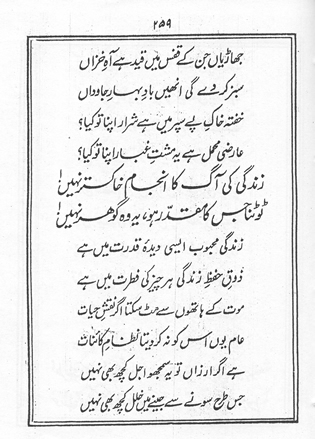 ۲۵۹
جھاڑیاں جن کے قفس میں قید ہے آہِ خزاں
سبز کر دے گی انھیں بادِ بہارِ جاوداں
خفتہ خاکِ پے سپر میں ہے شرار اپنا تو کیا؟
عارضی محمل ہے یہ مشتِ غبار اپنا تو کیا؟
زندگی کی آگ کا انجام خاکستر نہیں!
ٹوٹنا جس کا مقدّر ہو، یہ وہ گوہر نہیں!
زندگی محبوب ایسی دیدۂ قدرت میں ہے
ذوقِ حفظِ زندگی ہر چیز کی فطرت میں ہے
موت کے ہاتھوں سے مٹ سکتا اگر نقشِ حیات
عام یوں اس کو نہ کر دیتا نظامِ کائنات
ہے اگر ارزاں تو یہ سمجھو اجل کچھ بھی نہیں
جس طرح سونے سے جینے میں خلل کچھ بھی نہیں